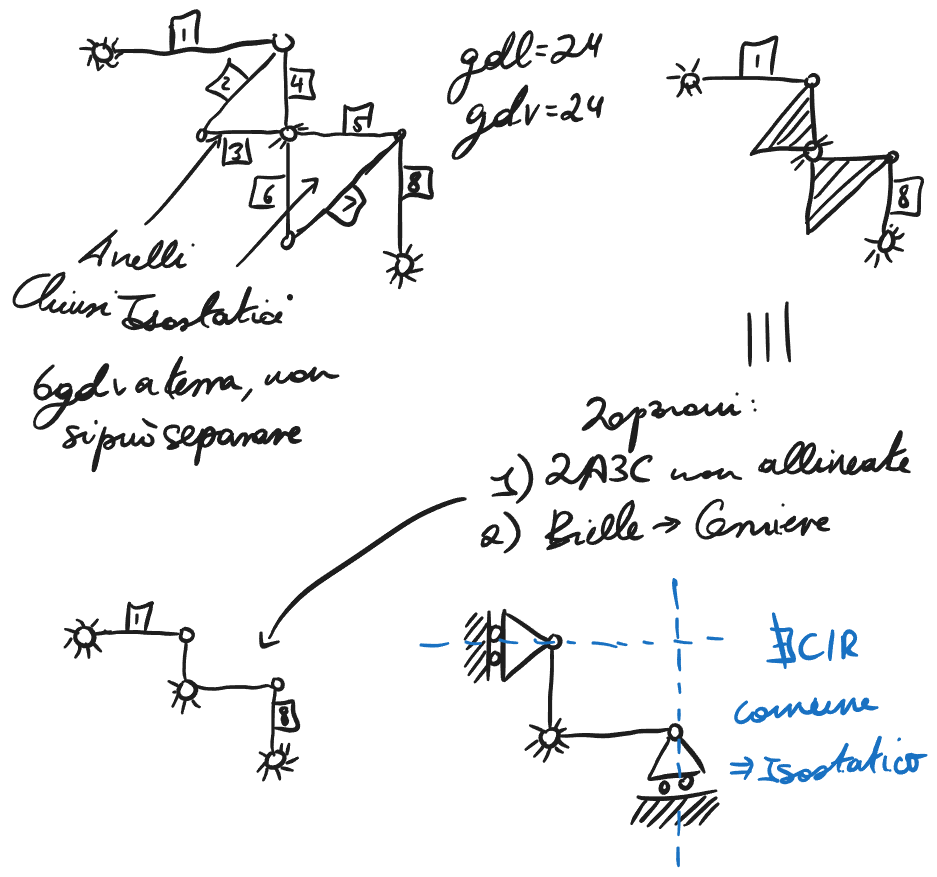 1
gdl=24
gdv=24
1
2
4
5
3
6
7
8
8
Anelli
Chiusi Isostatici
6gdv a terra, non
si può separare
2 opzioni:
1) 2A3C non allineate
2) Bielle → Cerniere
1
8
∄ CIR
comune
⇒ Isostatico